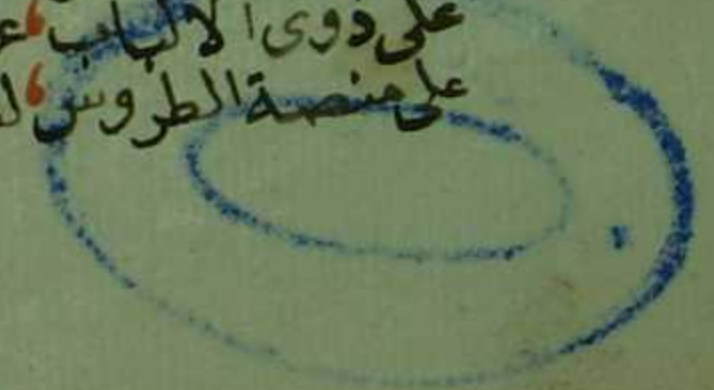 على ذوى الالباب،
على منصة الطروس،